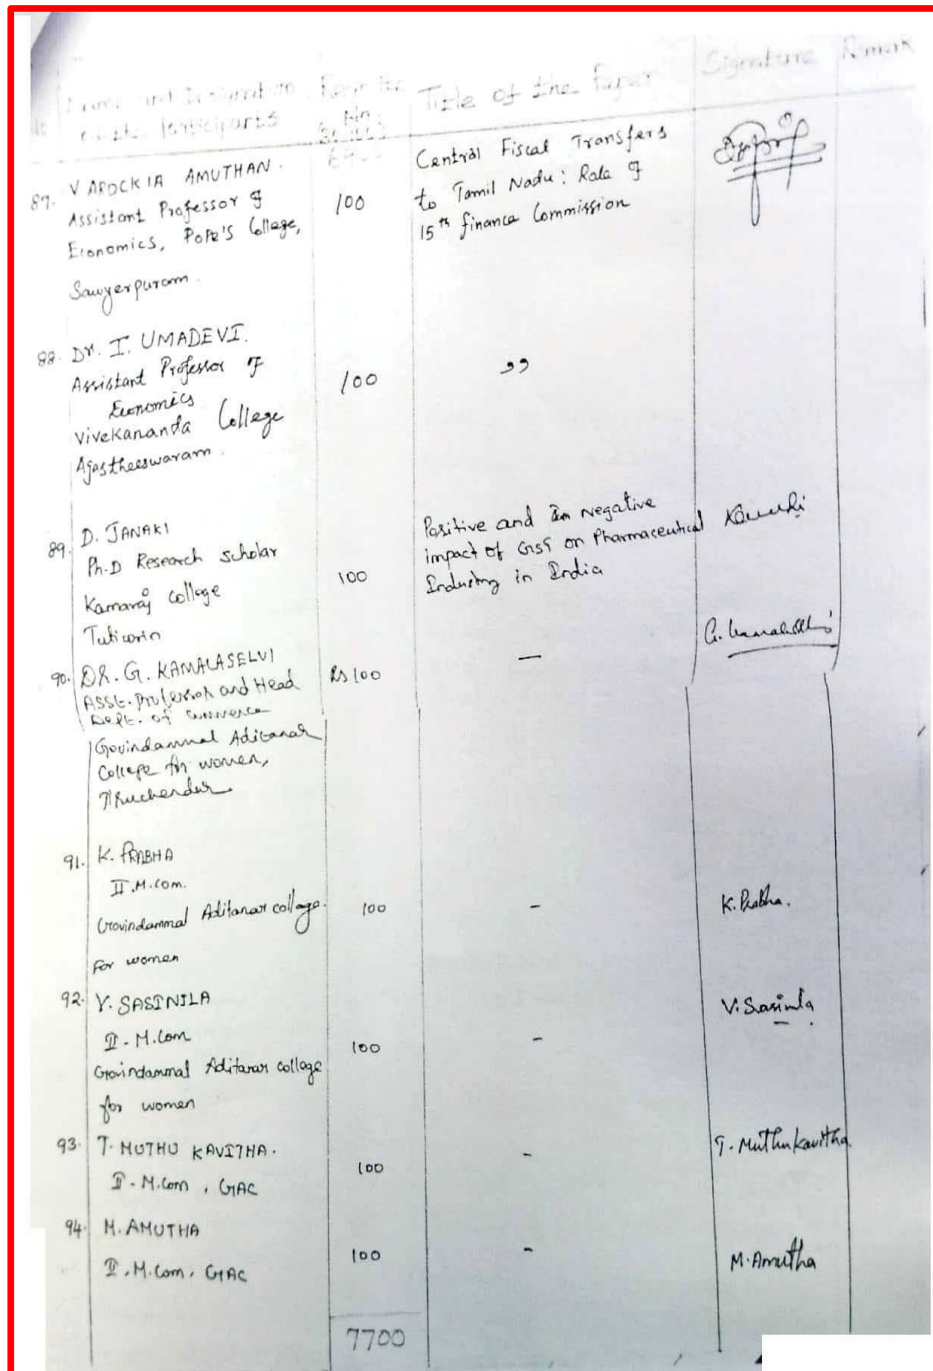 Name and Designation of the Participants
Title of the Paper
Signature
Remark
87. V AROCKIA AMUTHAN.
Assistant Professor of
Economics, Pope's College,
Sawyerpuram.
100
Central Fiscal Transfers
to Tamil Nadu: Role of
15th finance Commission
88. Dr. I. UMADEVI.
Assistant Professor of
Economics
Vivekananda College
Agastheeswaram.
100
"
89. D. JANAKI
Ph.D Research scholar
Kamaraj college
Tuticorin
100
Positive and negative
impact of GST on Pharmaceutical
Industry in India
90. DR. G. KAMALASELVI
ASSt. Professor and Head
Dept. of commerce
Govindammal Aditanar
College for women,
Tiruchendur
Rs 100
—
91. K. PRABHA
II.M.com.
Govindammal Aditanar college.
for women
100
-
K. Prabha.
92. V. SASINILA
II - M.Com
Govindammal Aditanar college
for women
100
-
V. Sasinila
93. T. MUTHU KAVITHA.
II - M.Com, GAC
100
-
T. Muthu Kavitha
94. M. AMUTHA
II. M.Com, GAC
100
-
M. Amutha
7700